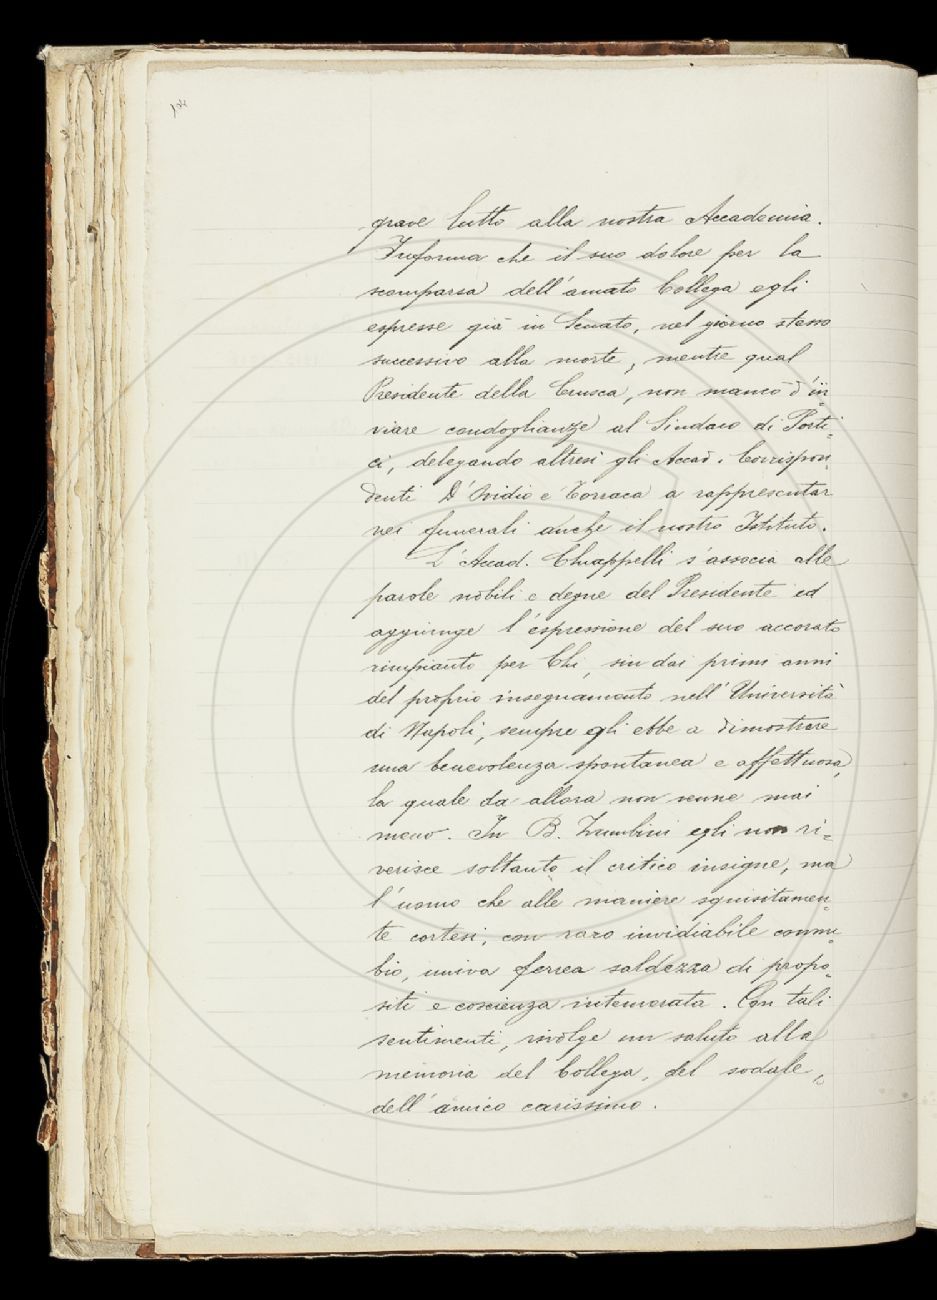 grave lutto alla nostra Accademia.
Informa che il suo dolore per la
scomparsa dell'amato Collega egli
espresse già in Senato, nel giorno stesso
successivo alla morte, mentre qual
Presidente della Crusca, non mancò d'in-
viare condoglianze al Sindaco di Porti-
ci, delegando altresì gli Accad. Corrispon-
denti D'Ovidio e Torraca a rappresentar
nei funerali anche il nostro Istituto.
L'Accad. Chiappelli s'associa alle
parole nobili e degne del Presidente ed
aggiunge l'espressione del suo accorato
rimpianto per Chi, sin dai primi anni
del proprio insegnamento nell'Università
di Napoli, sempre gli ebbe a dimostrare
una benevolenza spontanea e affettuosa,
la quale da allora non venne mai
meno. In B. Zumbini egli non ri-
verisce soltanto il critico insigne, ma
l'uomo che alle maniere squisitamen-
te cortesi, con raro invidiabile connu-
bio, univa ferrea saldezza di propo-
siti e coscienza intemerata. Con tali
sentimenti, rivolge un saluto alla
memoria del Collega, del sodale,
dell'amico carissimo.